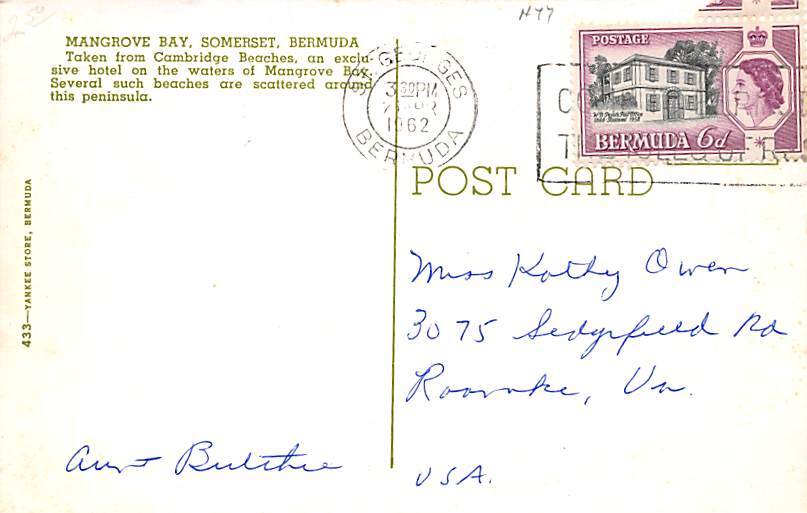 250
H77
MANGROVE BAY, SOMERSET, BERMUDA
Taken from Cambridge Beaches, an exclu-
sive hotel on the waters of Mangrove Bay.
Several such beaches are scattered around
this peninsula.
ST. GEORGES
3 30 PM
7 APR
1962
BERMUDA
POSTAGE
BERMUDA 6d
POST CARD
433—YANKEE STORE, BERMUDA
Miss Kathy Owen
3075 Sedgefield Rd
Roanoke, Va.
USA.
Aunt